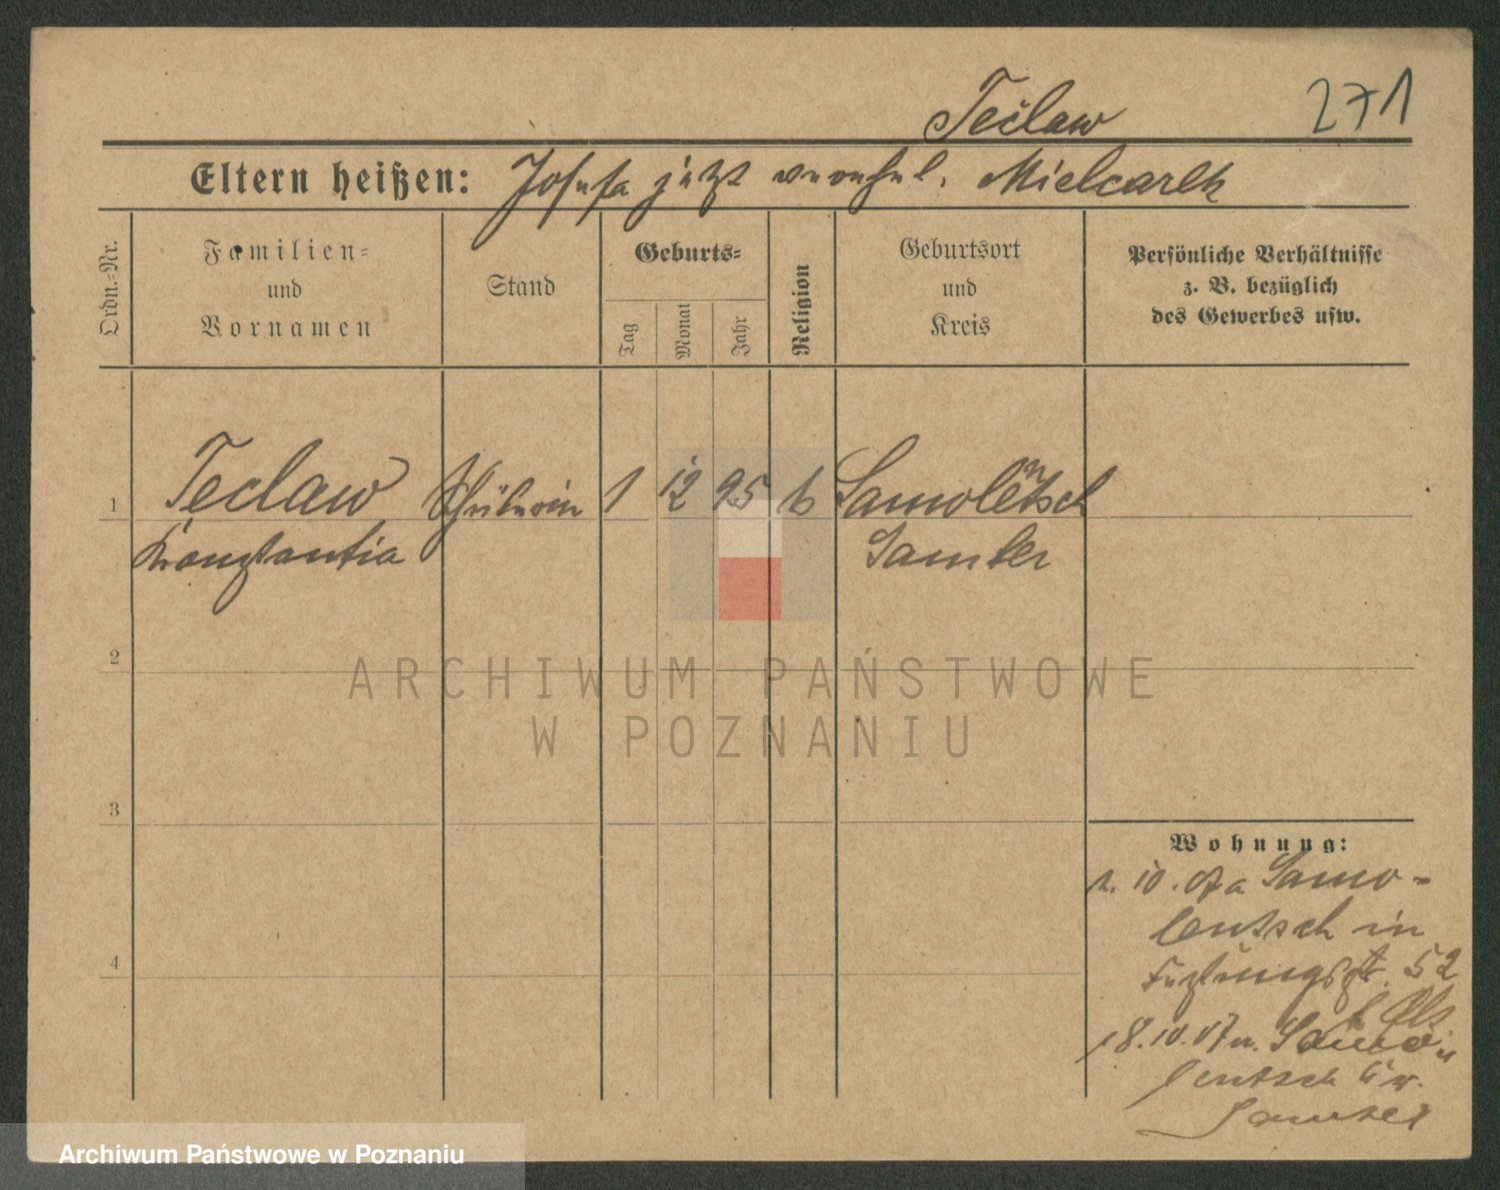 Teclaw
271
Eltern heißen: Josefa jetzt verehel. Mielcarek
Ordn.-Nr.
Familien-
und
Vornamen
Stand
Geburts-
Tag
Monat
Jahr
Religion
Geburtsort
und
Kreis
Persönliche Verhältnisse
z. B. bezüglich
des Gewerbes usw.
1
Teclaw Schülerin 1 12 95 k Samolentsch
Konstantia Samter
2
3
4
Wohnung:
1.10.07 a Samo-
lentsch in
Festungsstr. 52
18.10.07 n. Samo
lentsch Kr.
Samter
ARCHIWUM PAŃSTWOWE
W POZNANIU
Archiwum Państwowe w Poznaniu